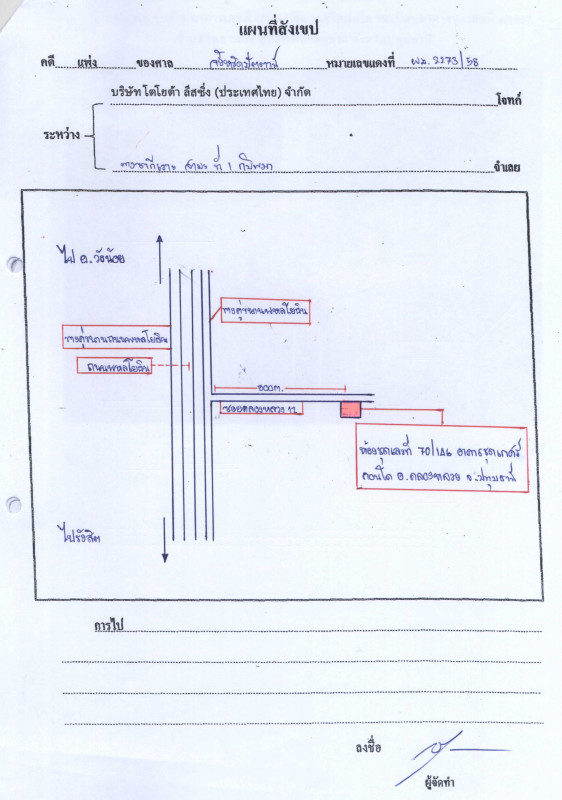 แผนที่สังเขป
คดี แพ่ง ของศาล หมายเลขแดงที่ ผบ. 2273/58
บริษัท โตโยต้า ลีสซิ่ง (ประเทศไทย) จำกัด โจทก์
ระหว่าง
ที่ 1 จำเลย
ไป อ. วังน้อย
ทางคู่ขนานพหลโยธิน
ทางคู่ขนานถนนพหลโยธิน
ถนนพหลโยธิน
300ม.
ซอยคลองหลวง 12
ห้องชุดเลขที่ 70/146 อาคารชุด
คอนโด อ. คลองหลวง จ. ปทุมธานี
ไปรังสิต
การไป
ลงชื่อ
ผู้จัดทำ